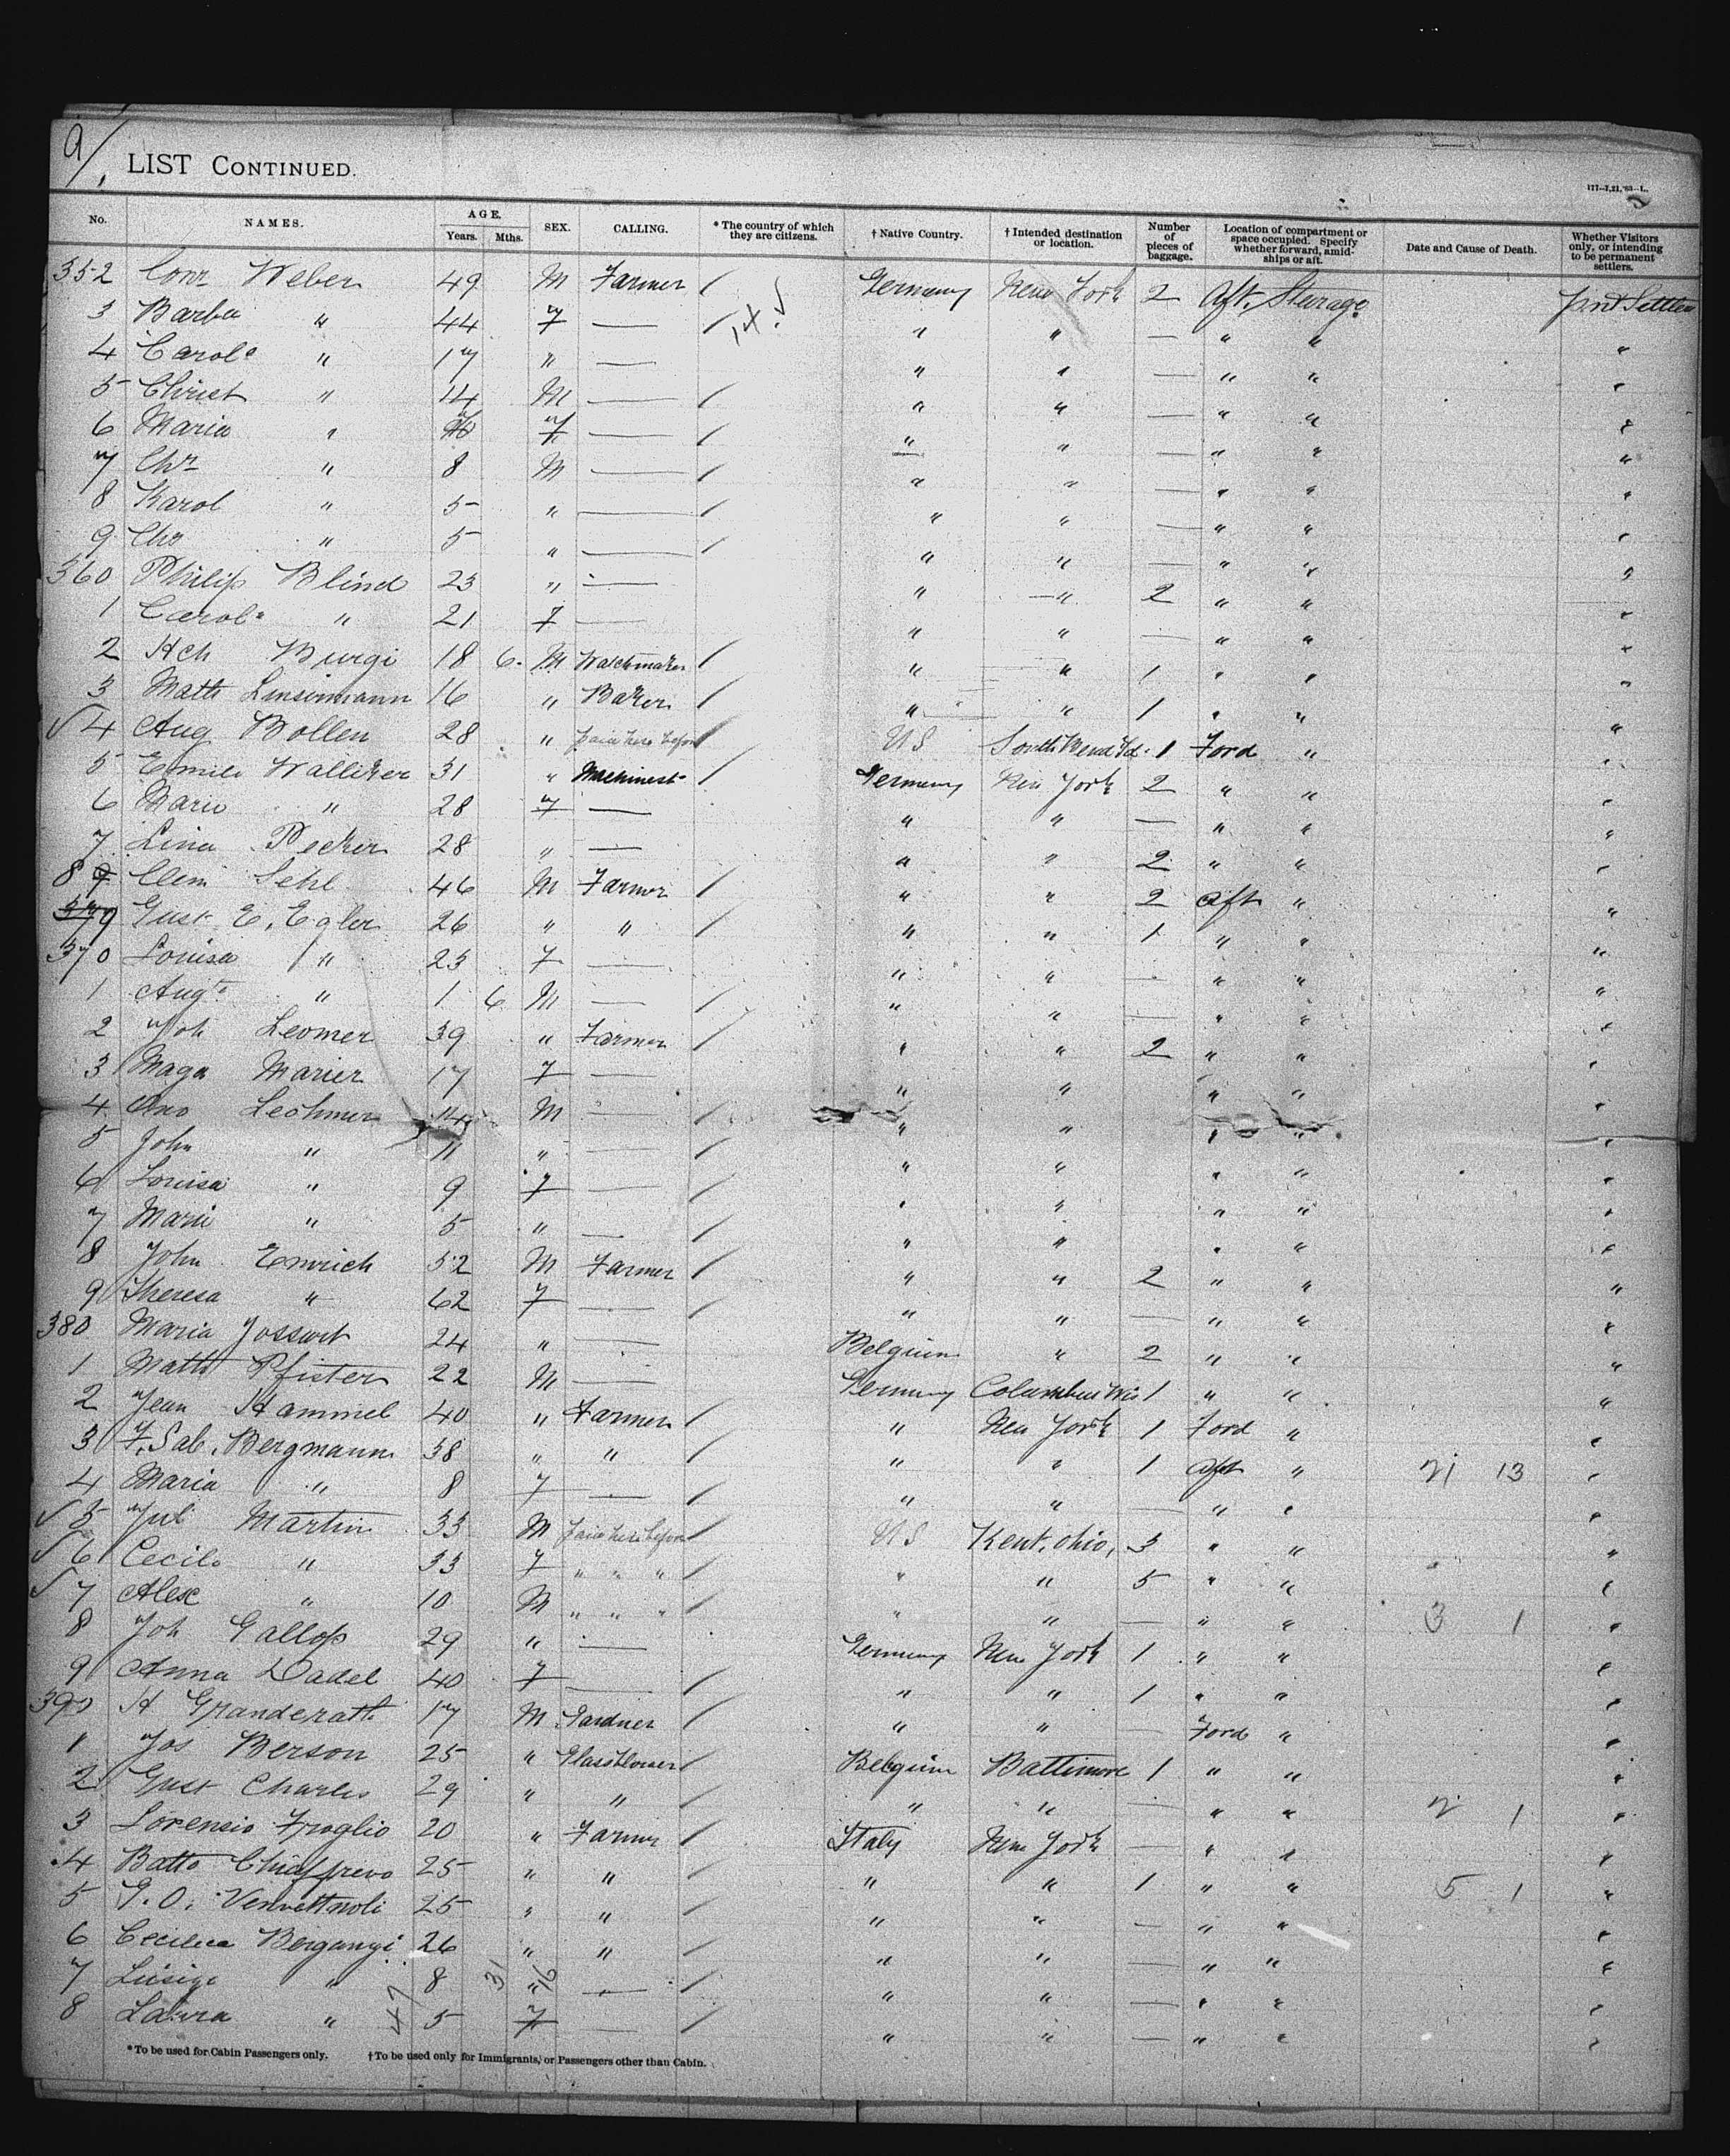 9/
LIST CONTINUED.
No. NAMES. AGE. Years. Mths. SEX. CALLING. * The country of which they are citizens. † Native Country. † Intended destination or location. Number of pieces of baggage. Location of compartment or space occupied. Specify whether forward, amidships or aft. Date and Cause of Death. Whether Visitors only, or intending to be permanent settlers.
352 Conr Weber 49 M Farmer / Germany New York 2 Aft. Steerage
3 Barba " 44 F — / " " — " " "
4 Carole " 17 " — " " — " " "
5 Christ " 14 M — / " " — " " "
6 Maria " F — / " " — " " "
7 Chr " 8 M — / " " — " " "
8 Karol " 5 " — / " " — " " "
9 Chs " 5 " — / " " — " " "
360 Philip Blind 23 " — " " 2 " " "
1 Carola " 21 F — " " — " " "
2 Hch Burgi 18 6. M Watchmaker / " " 1 " " "
3 Math Linsinmann 16 " Baker / " " 1 " " "
√ 4 Aug Bollen 28 " here before / US South Bend Id. 1 Ford " "
5 Emile Walliker 31 " Machinest / Germany New York 2 " " "
6 Marie " 28 F — " " — " " "
7 Lina Pecker 28 " — " " 2 " " "
8 Clem Sehl 46 M Farmer / " " 2 Aft " "
9 Gust E. Egler 26 " " / " " 1 " " "
370 Louisa " 23 F — " " — " " "
1 Augte " 1 6 M — / " " — " " "
2 Joh Leomer 39 " Farmer / " " 2 " " "
3 Maga Marier 17 F — " " " " "
4 Lechmer 14 M — / " " " " "
5 John " 11 " — / " " " " "
6 Louisa " 9 F — / " " " " "
7 Marie " 5 " — / " " " " "
8 John Emrich 52 M Farmer / " " 2 " " "
9 Theresa " 62 F — / " " — " " "
380 Maria Jossart 24 " — Belgium " 2 " " "
1 Math Pfister 22 M — Germany Columbus Wis 1 " " "
2 Jean Hammel 40 " Farmer / " New York 1 Ford " "
3 F. Sab. Bergmann 38 " " / " " 1 Aft " 21 13 "
4 Maria " 8 F — / " " — " "
√ 5 Jul Martin 33 M here before / US Kent, Ohio, 3 " " "
√ 6 Cecile " 33 F " " " / " " 5 " " "
√ 7 Alex " 10 M " " " / " " — " " 3 1 "
8 Joh Gallop 29 " — Germany New York 1 " " "
9 Anna Dadel 40 F — / " " 1 " " "
390 H Granderath 17 M Gardner / " " — Ford " "
1 Jos Berson 25 " Glassblower / Belgium Baltimore 1 " " "
2 Gust Charles 29 " " / " " — " " 2 1 "
3 Lorensio Froglio 20 " Farmer / Italy New York — " " "
4 Batto Chiaffrevo 25 " " / " " 1 " " 5 1 "
5 25 " " / " " — " " "
6 Cecilia 26 " " " " — " " "
7 " 8 31 " 16 — / " " — " " "
8 Laura " 47 5 F — / " " — " " "
*To be used for Cabin Passengers only. †To be used only for Immigrants, or Passengers other than Cabin.